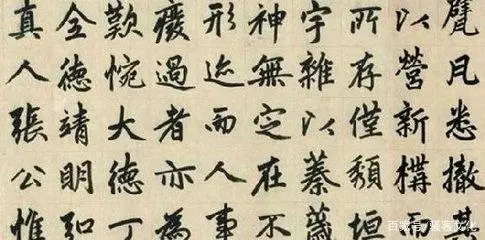 甓凡悉撤其
以營新構而
所存僅頹垣
宇雜以蓁薉
神無定在不
形迹而人事
廢過者亦為
歎惋大德丁
全德靖明弘
真人張公惟
百家号/骚客文化